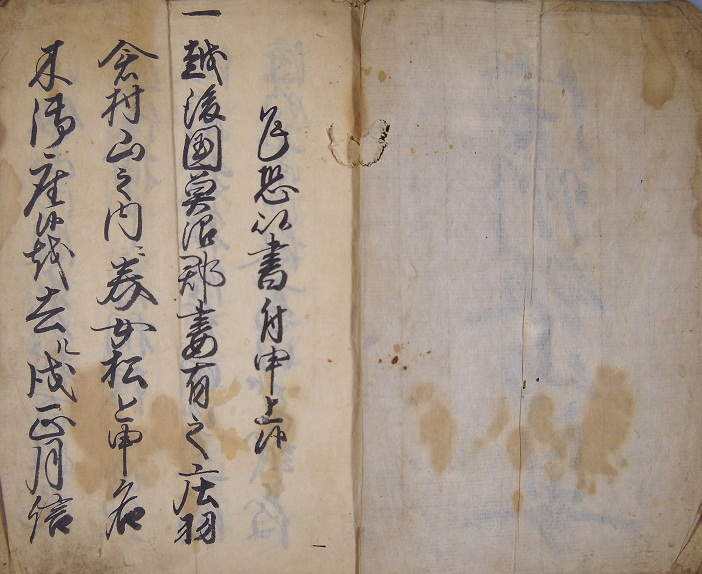 乍恐以書付申上候
一越後国魚沼郡妻有之庄羽
倉村山之内ニ女松と申名
木御座候越去ル戌正月信